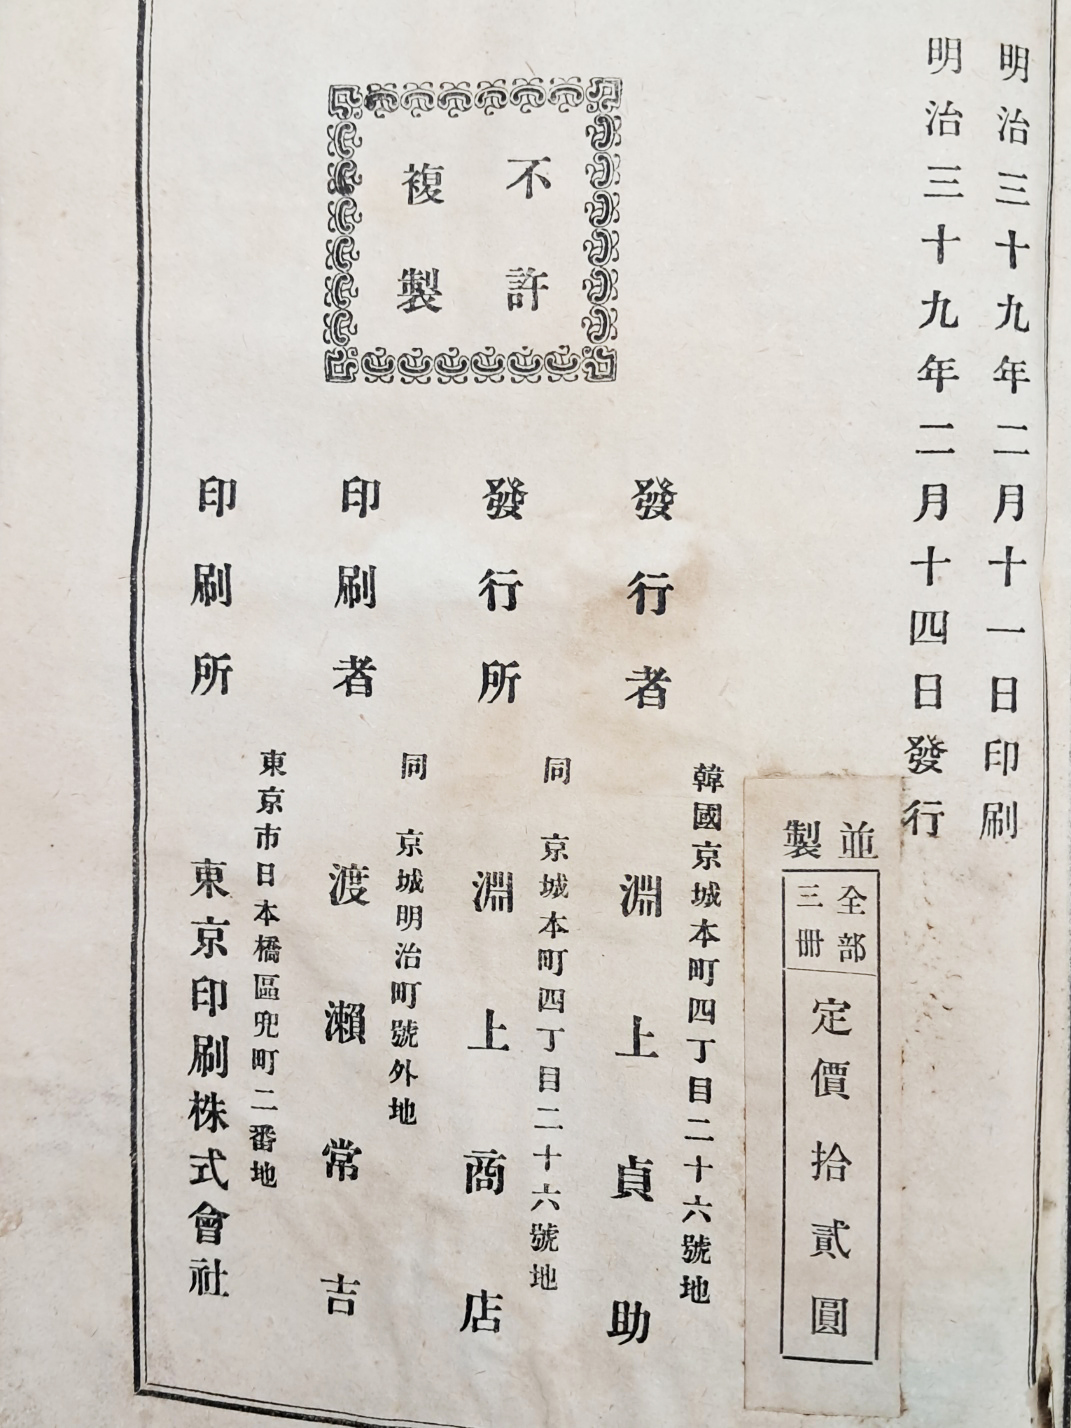 明治三十九年二月十一日印刷
明治三十九年二月十四日發行
並製
全部三冊
定價拾貳圓
韓國京城本町四丁目二十六號地
發行者 淵上貞助
同 京城本町四丁目二十六號地
發行所 淵上商店
同 京城明治町號外地
印刷者 渡瀨常吉
東京市日本橋區兜町二番地
印刷所 東京印刷株式會社
不許
複製